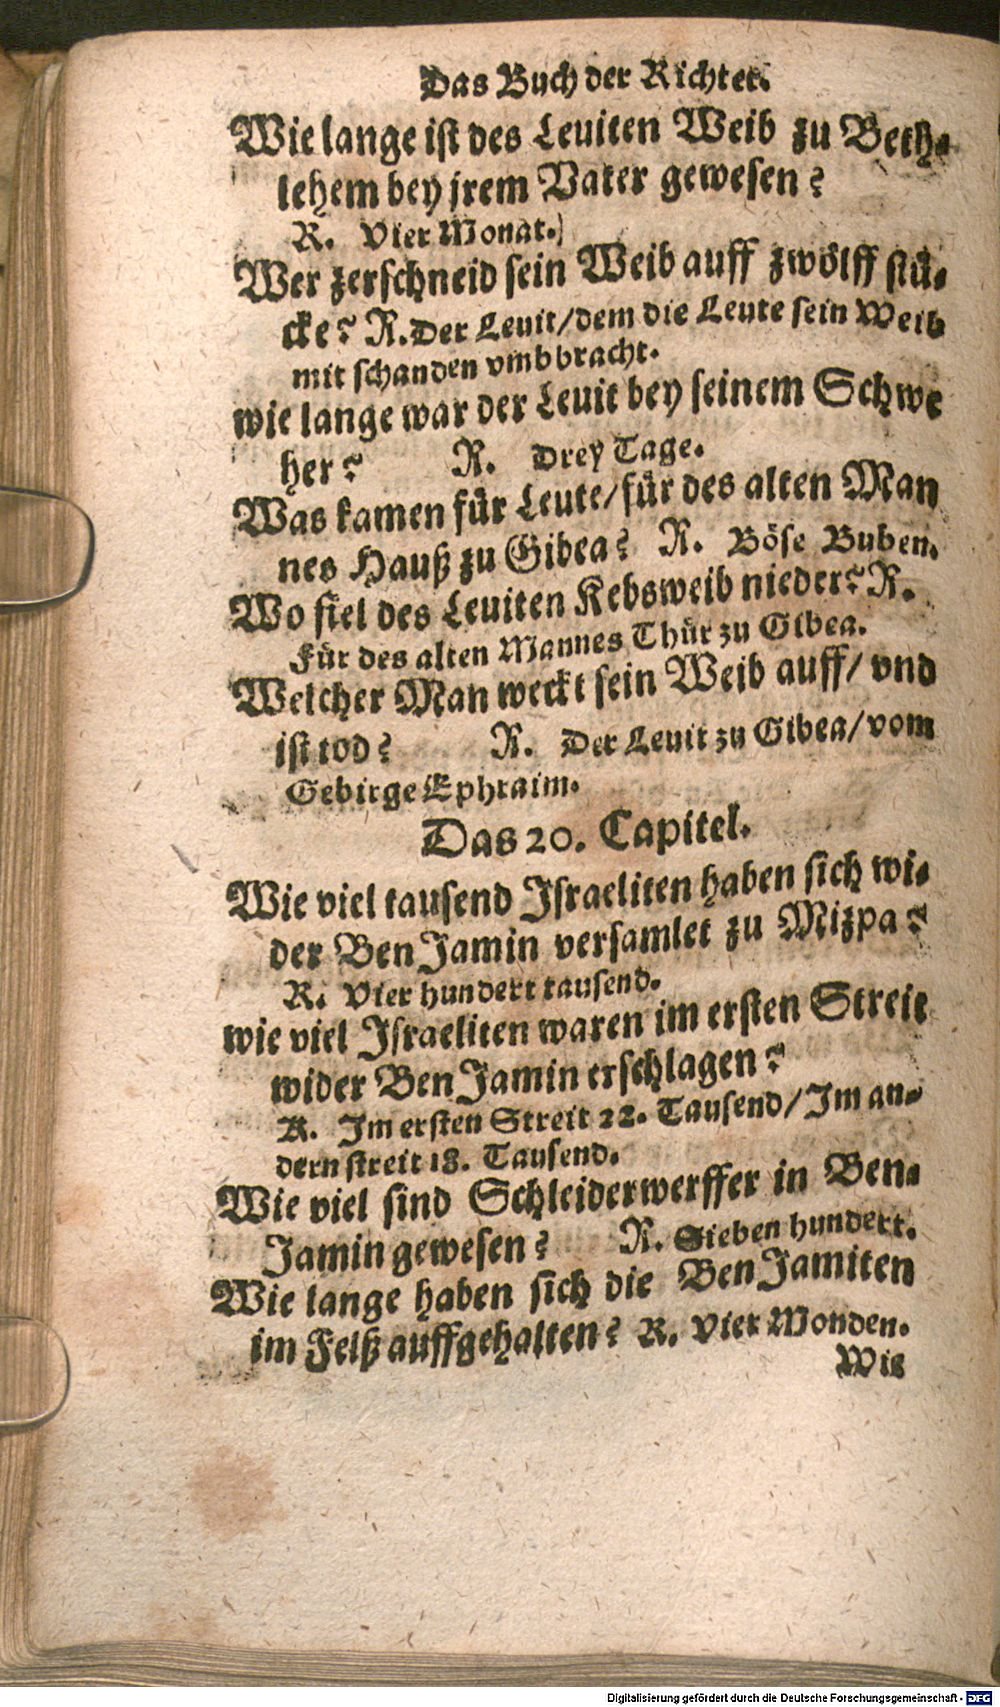 Das Buch der Richter.
Wie lange ist des Leuiten Weib zu Beth-
lehem bey jrem Vater gewesen?
R. Vier Monat.)
Wer zerschneid sein Weib auff zwölff stü-
cke? R. Der Leuit/dem die Leute sein Weib
mit schanden vmbbracht.
wie lange war der Leuit bey seinem Schwe
her? R. Drey Tage.
Was kamen für Leute/für des alten Man
nes Hauß zu Gibea? R. Böse Buben.
Wo fiel des Leuiten Kebsweib nieder? R.
Für des alten Mannes Thür zu Gibea.
Welcher Man weckt sein Weib auff/ vnd
ist tod? R. Der Leuit zu Gibea/vom
Gebirge Ephraim.
Das 20. Capitel.
Wie viel tausend Israeliten haben sich wi-
der Ben Jamin versamlet zu Mizpa?
R. Vier hundert tausend.
wie viel Israeliten waren im ersten Streit
wider Ben Jamin erschlagen?
R. Im ersten Streit 22. Tausend/Im an-
dern streit 18. Tausend.
Wie viel sind Schleiderwerffer in Ben-
Jamin gewesen? R. Sieben hundert.
Wie lange haben sich die Ben Jamiten
im Felß auffgehalten? R. Vier Monden.
Wie
Digitalisierung gefördert durch die Deutsche Forschungsgemeinschaft - DFG